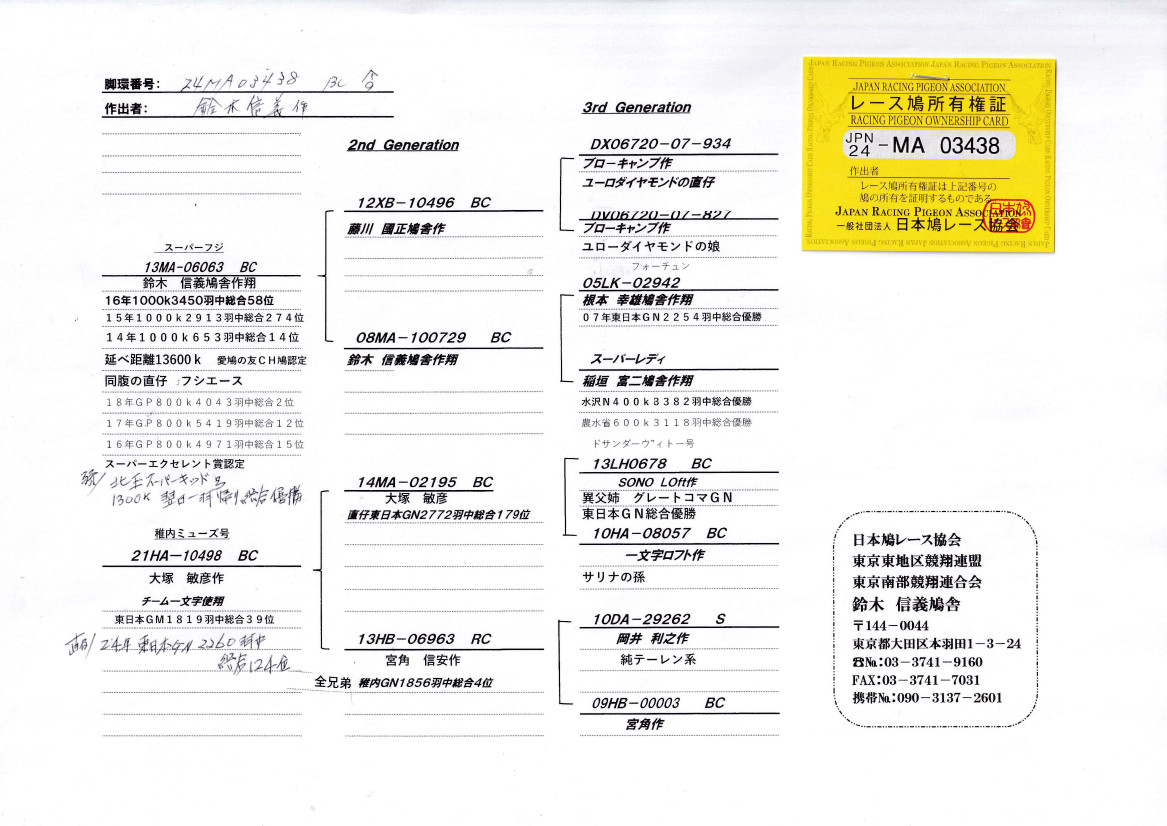 脚環番号: 24MA03438 BC 合
作出者: 鈴木信義作
スーパーフジ
13MA-06063 BC
鈴木 信義鳩舎作翔
16年1000k3450羽中総合58位
15年1000k2913羽中総合274位
14年1000k653羽中総合14位
延べ距離13600k 愛鳩の友CH鳩認定
同腹の直仔 :フシエース
18年GP800k4043羽中総合2位
17年GP800k5419羽中総合12位
16年GP800k4971羽中総合15位
スーパーエクセレント賞認定
北王スーパーキッド号
1300K 翌日一羽帰り総合優勝
稚内ミューズ号
21HA-10498 BC
大塚 敏彦作
チーム一文字使翔
東日本GM1819羽中総合39位
24年東日本GN 2260羽中
総合124位
2nd Generation
12XB-10496 BC
藤川 國正鳩舎作
08MA-100729 BC
鈴木 信義鳩舎作翔
14MA-02195 BC
大塚 敏彦
直仔東日本GN2772羽中総合179位
13HB-06963 RC
宮角 信安作
全兄弟 稚内GN1856羽中総合4位
3rd Generation
DX06720-07-934
ブローキャンプ作
ユーロダイヤモンドの直仔
DV06720-07-827
ブローキャンプ作
ユローダイヤモンドの娘
フォーチュン
05LK-02942
根本 幸雄鳩舎作翔
07年東日本GN2254羽中総合優勝
スーパーレディ
稲垣 富二鳩舎作翔
水沢N400k3382羽中総合優勝
農水省600k3118羽中総合優勝
ドサンダーヴィトー号
13LH0678 BC
SONO LOft作
異父姉 グレートコマGN
東日本GN総合優勝
10HA-08057 BC
一文字ロフト作
サリナの孫
10DA-29262 S
岡井 利之作
純テーレン系
09HB-00003 BC
宮角作
JAPAN RACING PIGEON ASSOCIATION
レース鳩所有権証
RACING PIGEON OWNERSHIP CARD
JPN 24 -MA 03438
作出者
レース鳩所有権証は上記番号の
鳩の所有を証明するものである
JAPAN RACING PIGEON ASSOCIATION
一般社団法人 日本鳩レース協会
日本鳩レース協会
東京東地区競翔連盟
東京南部競翔連合会
鈴木 信義鳩舎
〒144-0044
東京都大田区本羽田1-3-24
☎№:03-3741-9160
FAX:03-3741-7031
携帯№:090-3137-2601